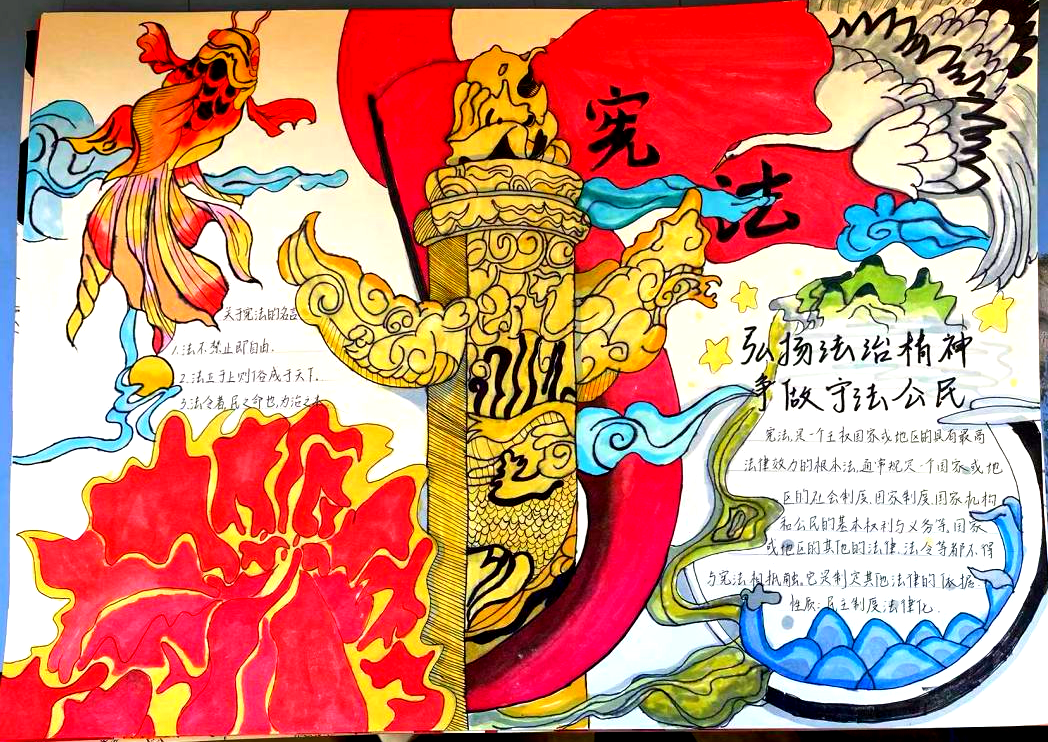 宪法
关于宪法的名言
1.法不禁止即自由.
2.法立于上则俗成于天下.
3.法令者,民之命也,为治之本
弘扬法治精神
争做守法公民
宪法,是一个主权国家或地区的具有最高
法律效力的根本法,通常规定一个国家或地
区的社会制度.国家制度.国家机构
和公民的基本权利与义务等.国家
或地区的其他的法律.法令等都不得
与宪法相抵触.它是制定其他法律的依据
性质:民主制度法律化.